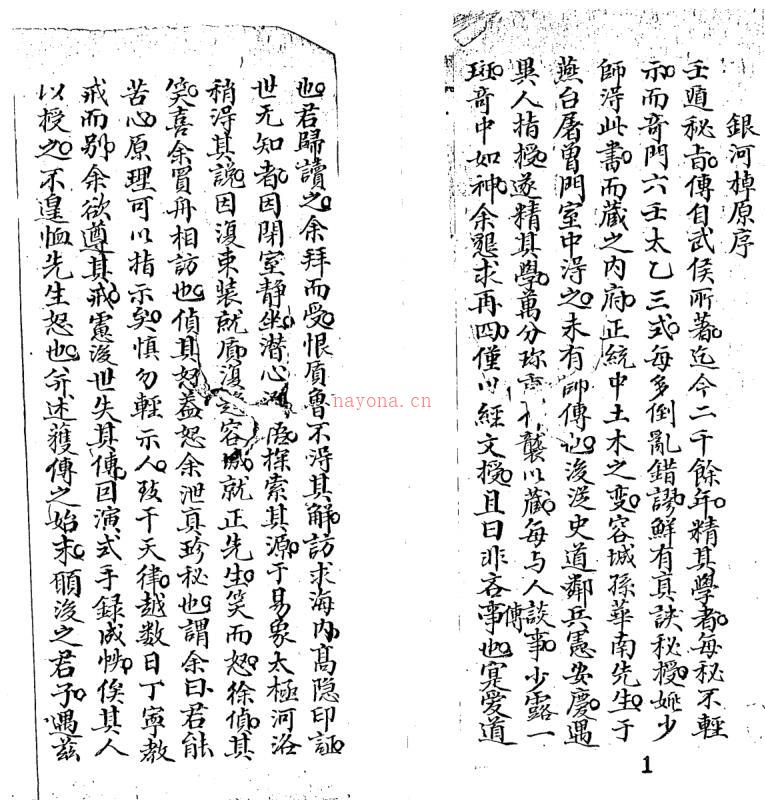 銀河棹原序
壬遁秘旨傳自武侯所著迄今二千餘年精其學者每秘不輕
示而奇門六壬太乙三式每多倒亂錯謬鮮有真訣秘授姚少
師淂此書而藏之内府正統中土木之变容城孫華南先生于
燕台屠曾門室中淂之未有師傳也後從史道鄰兵憲安慶遇
異人指授遂精其學萬分珍什襲以藏每与人談事少露一
斑奇中如神余懇求再四僅以經文授且曰非吝傳事也寔愛道
1
也君歸讀之余拜而受恨質魯不淂其解訪求海内高隐印証
世无知者因閉室静坐潜心探索其源于易象太極河洛
稍淂其説因復束装就質復之容城就正先生笑而恕徐偵其
笑喜余買舟相訪也偵其好蓋恕余泄真珍秘也謂余曰君能
苦心原理可以指示矣慎勿輕示人致干天律越数日丁寧教
戒而别余欲遵其戒慮後世失其傳囙演式手録成帙俟其人
以授之不遑恤先生怒也并述獲傳之始末願後之君子遇茲
nayona.cn